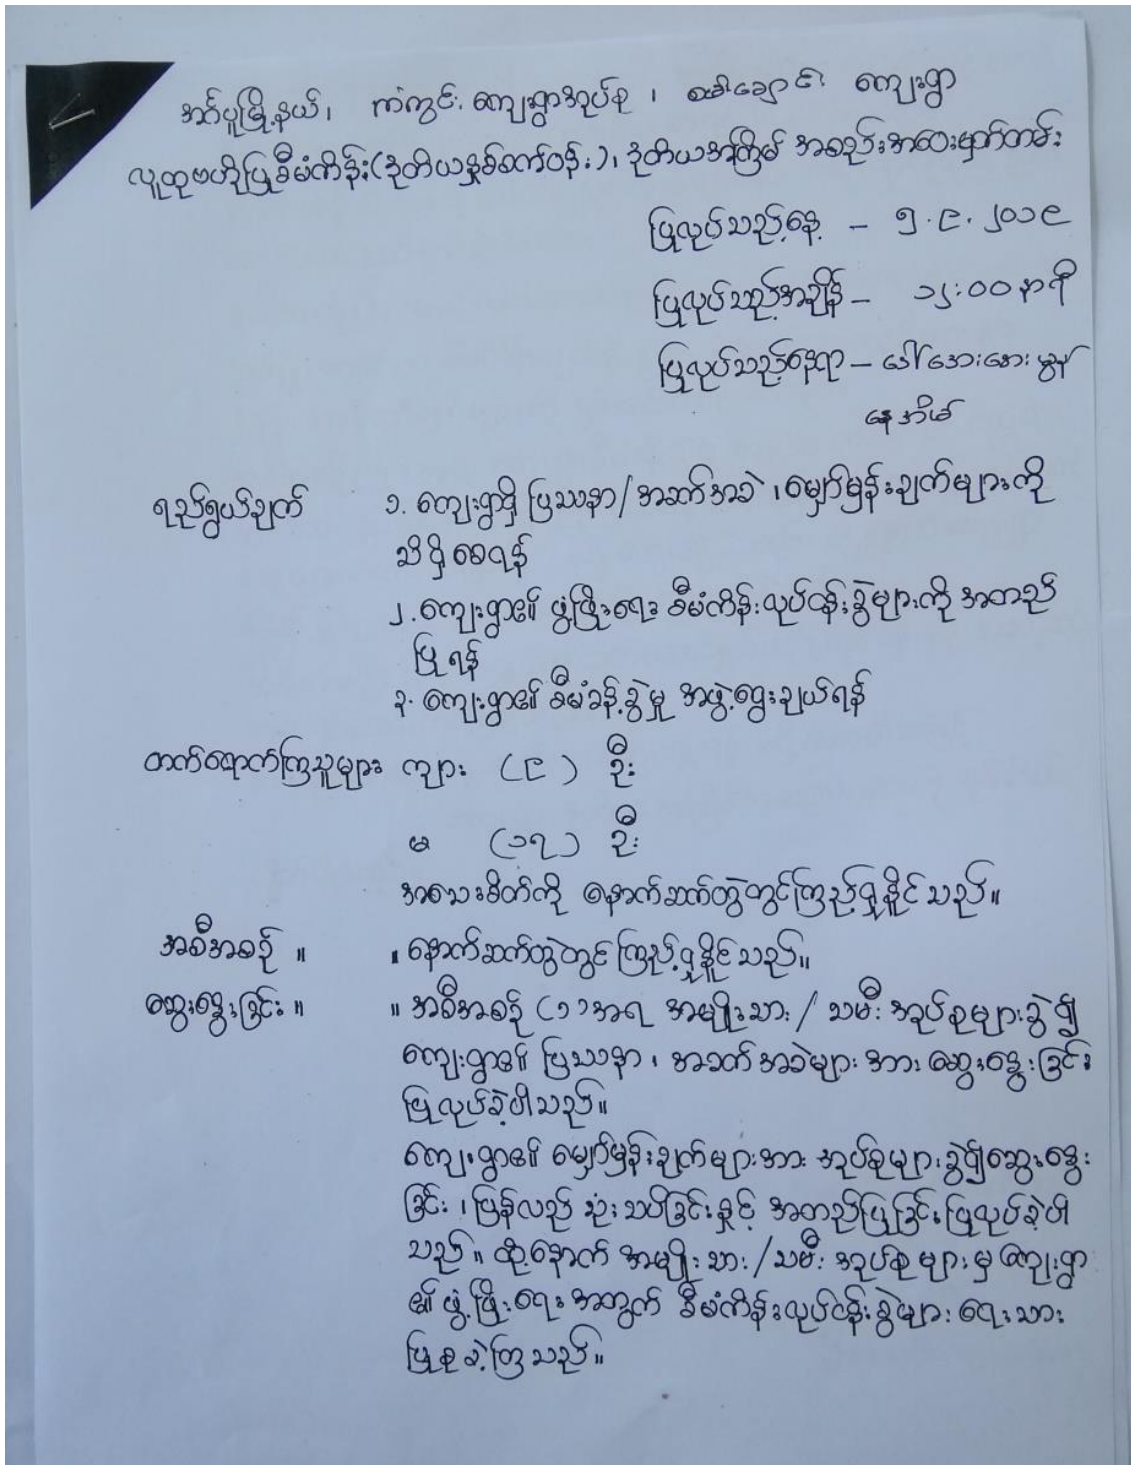 အင်္ဂပူမြို့နယ်၊ ကံကွင်း ကျေးရွာအုပ်စု ၊ ချောင်း ကျေးရွာ
လူထုဗဟိုပြုစီမံကိန်း(ဒုတိယနှစ်စက်ဝန်း)၊ ဒုတိယအကြိမ် အစည်းအဝေးမှတ်တမ်း
ပြုလုပ်သည့်နေ့ - ၅.၉.၂၀၁၉
ပြုလုပ်သည့်အချိန် - ၁၂:၀၀ နာရီ
ပြုလုပ်သည့်နေရာ - ဒေါ်အေးအေးမွန်
နေအိမ်
ရည်ရွယ်ချက် ၁. ကျေးရွာရှိ ပြဿနာ/အခက်အခဲ ၊ မျှော်မှန်းချက်များကို
သိရှိစေရန်
၂. ကျေးရွာ၏ ဖွံ့ဖြိုးရေး စီမံကိန်းလုပ်ငန်းခွဲများကို အတည်
ပြုရန်
၃. ကျေးရွာ၏ စီမံခန့်ခွဲမှု အဖွဲ့ရွေးချယ်ရန်
တက်ရောက်ကြသူများ ကျား (၉) ဦး
မ (၁၇) ဦး
အသေးစိတ်ကို နောက်ဆက်တွဲတွင်ကြည့်ရှုနိုင်သည်။
အစီအစဉ် ။ ။ နောက်ဆက်တွဲတွင် ကြည့်ရှုနိုင်သည်။
ဆွေးနွေးခြင်း ။ ။ အစီအစဉ် (၁) အရ အမျိုးသား / သမီး အုပ်စုများခွဲ၍
ကျေးရွာ၏ ပြဿနာ ၊ အခက်အခဲများ အား ဆွေးနွေးခြင်း
ပြုလုပ်ခဲ့ပါသည်။
ကျေးရွာ၏ မျှော်မှန်းချက်များအား အုပ်စုများခွဲ၍ဆွေးနွေး
ခြင်း ၊ ပြန်လည် သုံးသပ်ခြင်းနှင့် အတည်ပြုခြင်းပြုလုပ်ခဲ့ပါ
သည်။ ထို့နောက် အမျိုးသား/သမီး အုပ်စုများမှ ကျေးရွာ
၏ ဖွံ့ဖြိုးရေးအတွက် စီမံကိန်းလုပ်ငန်းခွဲများ ရေးသား
ပြုစုခဲ့ကြသည်။